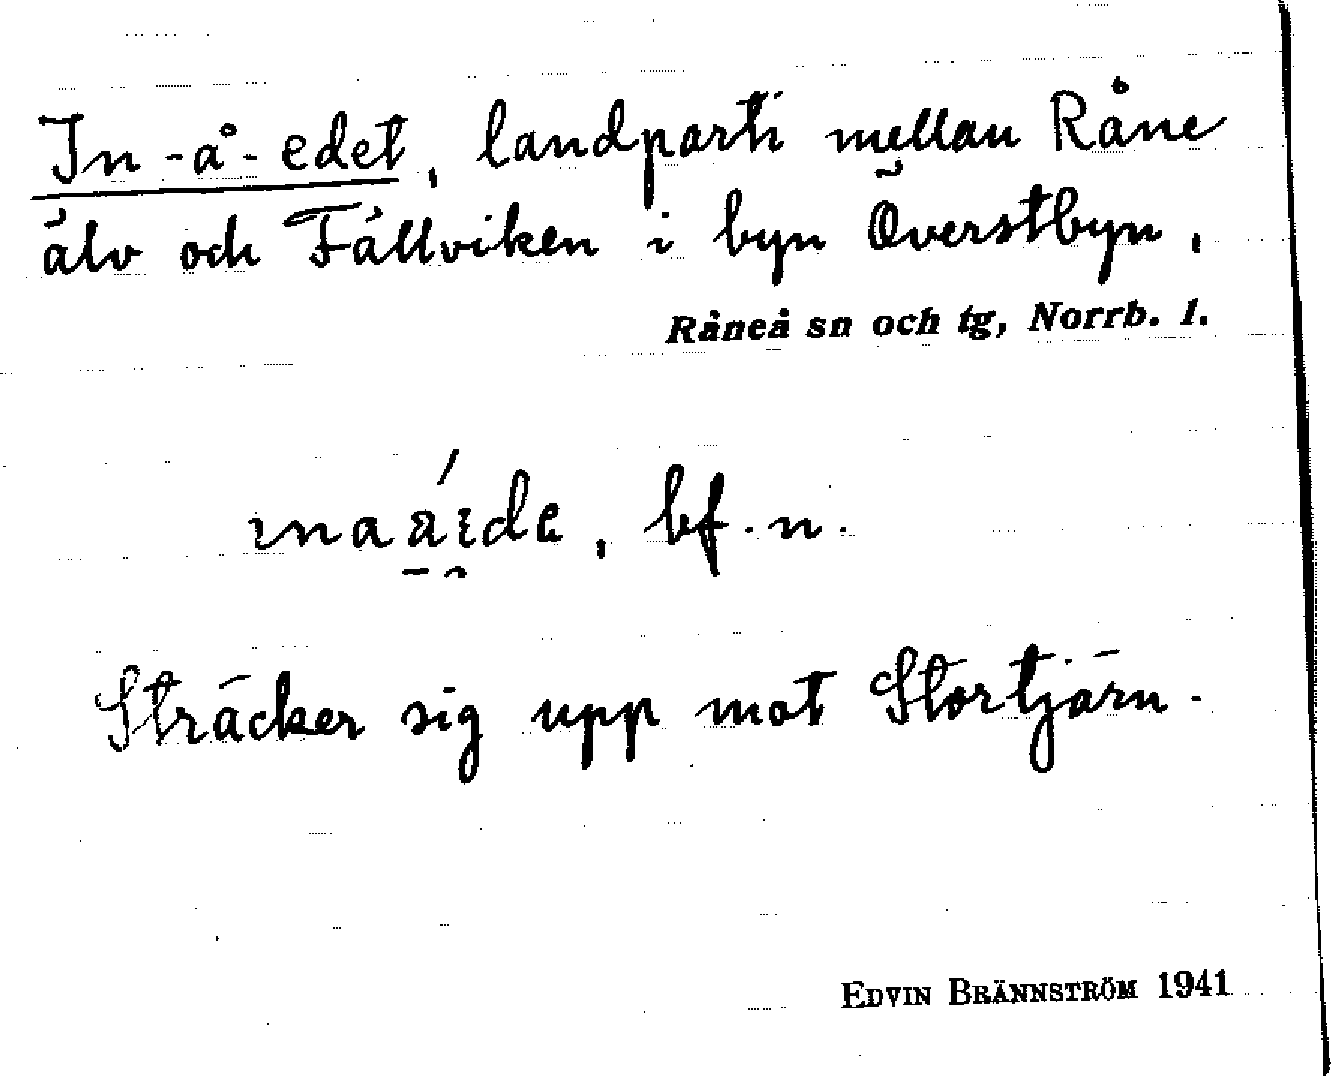 In-å-edet, landparti mellan Råne
älv och Fällviken i byn Överstbyn,
Råneå sn och tg, Norrb. l.
bf. n.
Sträcker sig upp mot Stortjärn.
EDVIN BRÄNNSTRÖM 1941